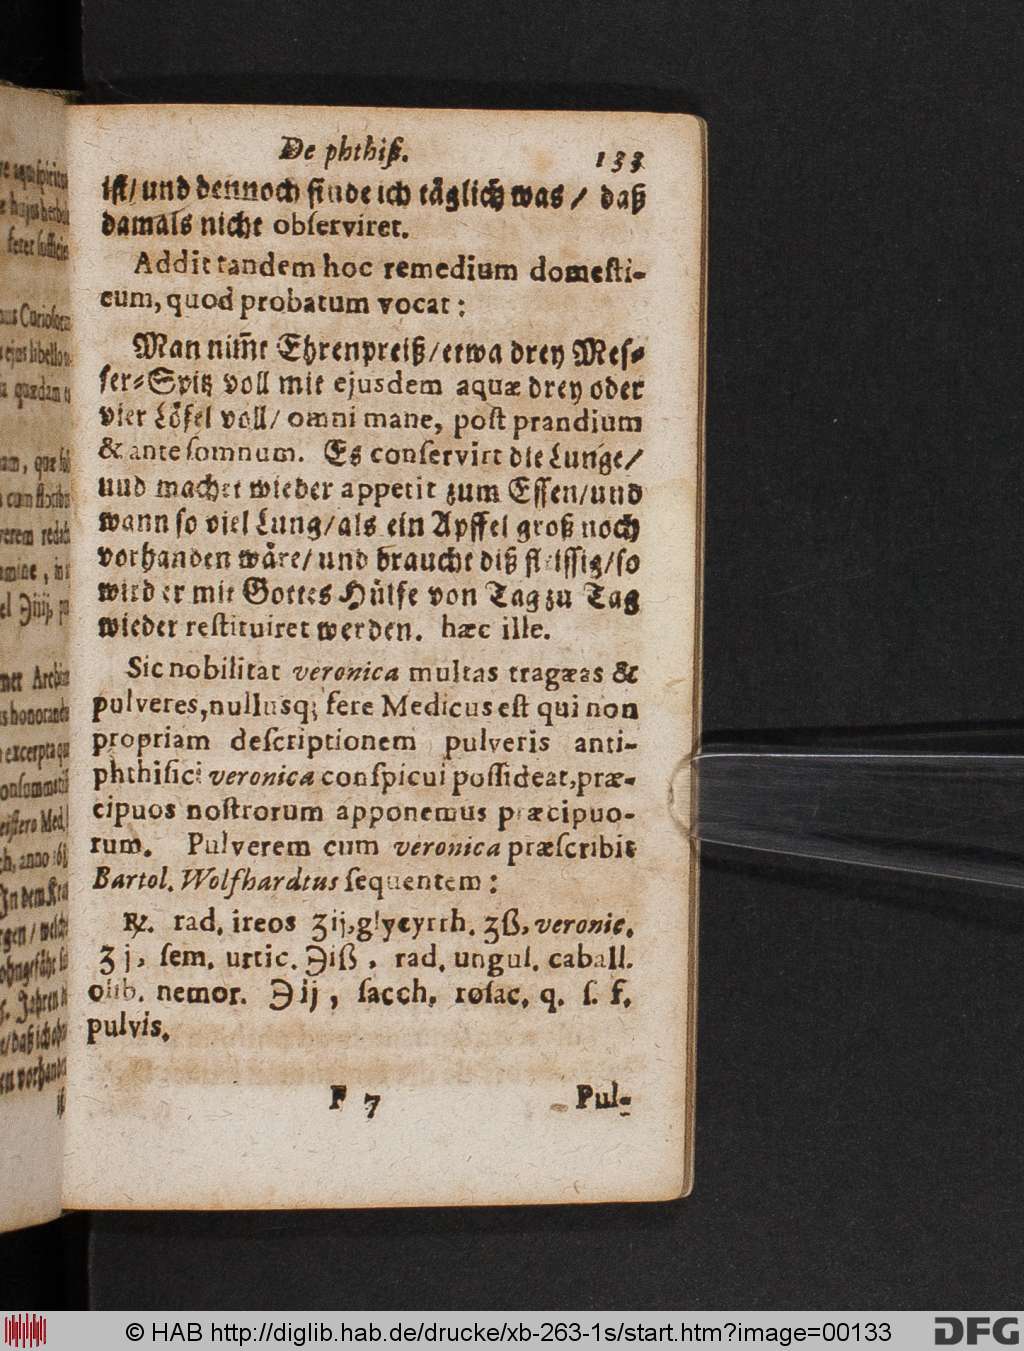 De phthiſ. 133
iſt/ und dennoch finde ich täglich was / daß
damals nicht obſerviret.
Addit tandem hoc remedium domeſti-
cum, quod probatum vocat:
Man nim̃t Ehrenpreiß/ etwa drey Meſ-
ſer-Spitz voll mit ejusdem aquæ drey oder
vier Löfel voll/ omni mane, poſt prandium
& ante ſomnum. Es conſervirt die Lunge/
und machet wieder appetit zum Eſſen/ und
wann ſo viel Lung/ als ein Apffel groß noch
vorhanden wäre/ und braucht diß fleiſſig/ ſo
wird er mit Gottes Hülfe von Tag zu Tag
wieder reſtituiret werden. hæc ille.
Sic nobilitat veronica multas tragæas &
pulveres, nullusq; fere Medicus eſt qui non
propriam deſcriptionem pulveris anti-
phthiſici veronica conſpicui poſſideat, præ-
cipuos noſtrorum apponemus præcipuo-
rum. Pulverem cum veronica præſcribit
Bartol. Wolfhardtus ſequentem:
℞. rad. ireos ʒij, glycyrrh. ʒß, veronic.
ʒj, ſem. urtic. ℈iß, rad. ungul. caball.
olib. nemor. ℈ij, ſacch. roſac. q. ſ. f.
pulvis.
F 7 Pul-
© HAB http://diglib.hab.de/drucke/xb-263-1s/start.htm?image=00133
DFG